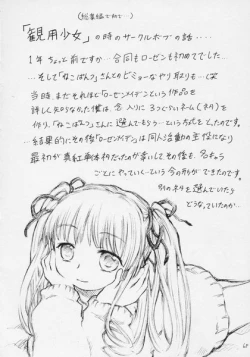 (総集編で初めて…)
「観用少女」の時のサークルボブの話‥‥
1年ちょっと前ですか… 今回もローゼンも初めてでした…
…そして「ねこぱんつ」さんとのビミョーなやり取りも…(笑
当時、まだそれほど「ローゼンメイデン」という作品を
詳しく知らなかった僕は、念入りに3つぐらいネーム(ネタ)を
作り、「ねこぱんつ」さんに選んでもらう…という方式をとったのです。
…結果的にその後「ローゼンメイデン」は同人活動の主役になり
最初が真紅単体ネタだったのが幸いしてその後も、各キャラ
ごとにやっていく…という今の形ができたのです。
別のネタを選んでいたら
どうなっていたのか…